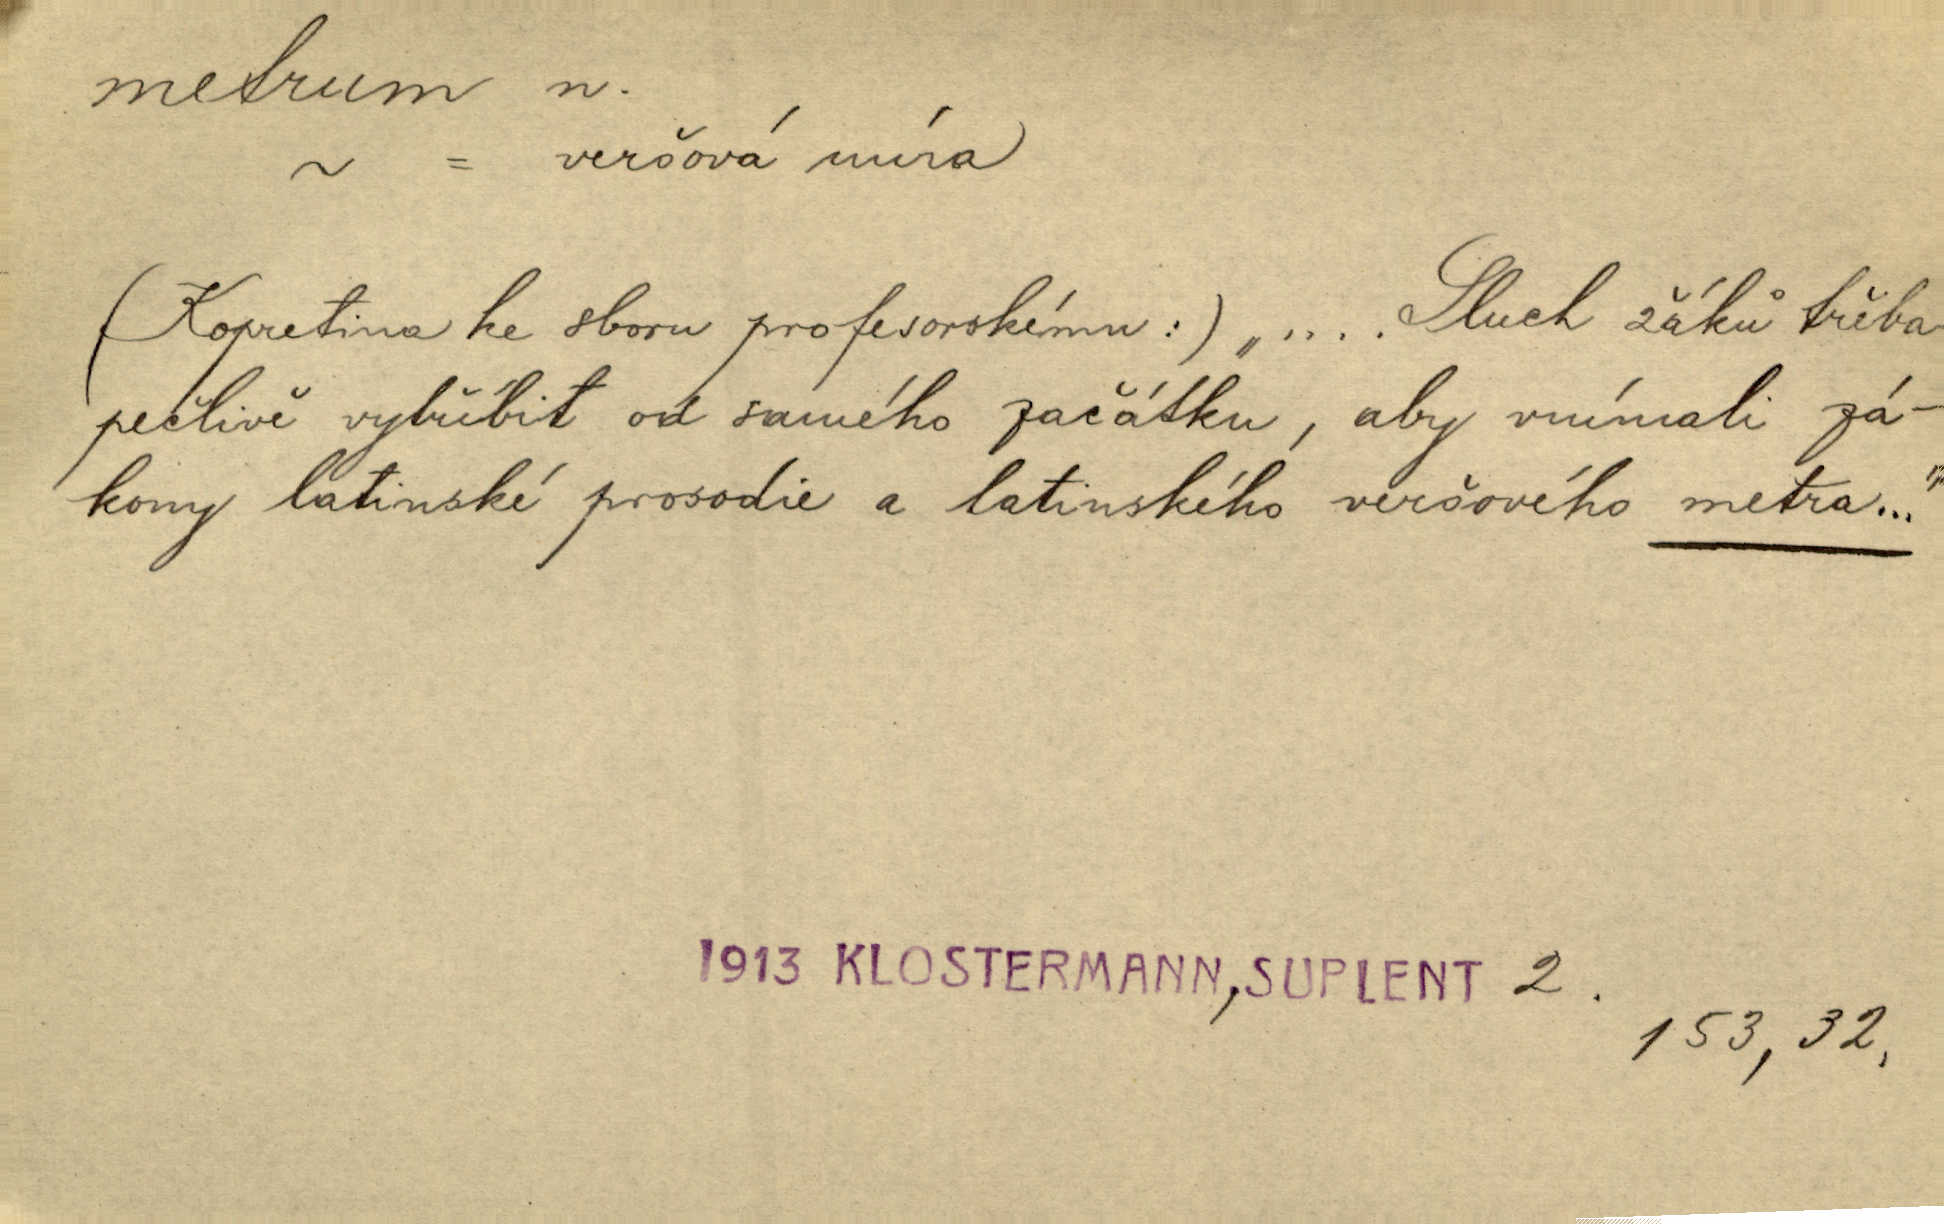 metrum n.
~ = veršová míra
(Kopretina ke sboru profesorskému:) „.... Sluch žáků třeba
pečlivě vytříbit od samého začátku, aby vnímali zá-
kony latinské prosodie a latinského veršového metra..."
1913 KLOSTERMANN, SUPLENT 2.
153, 32.